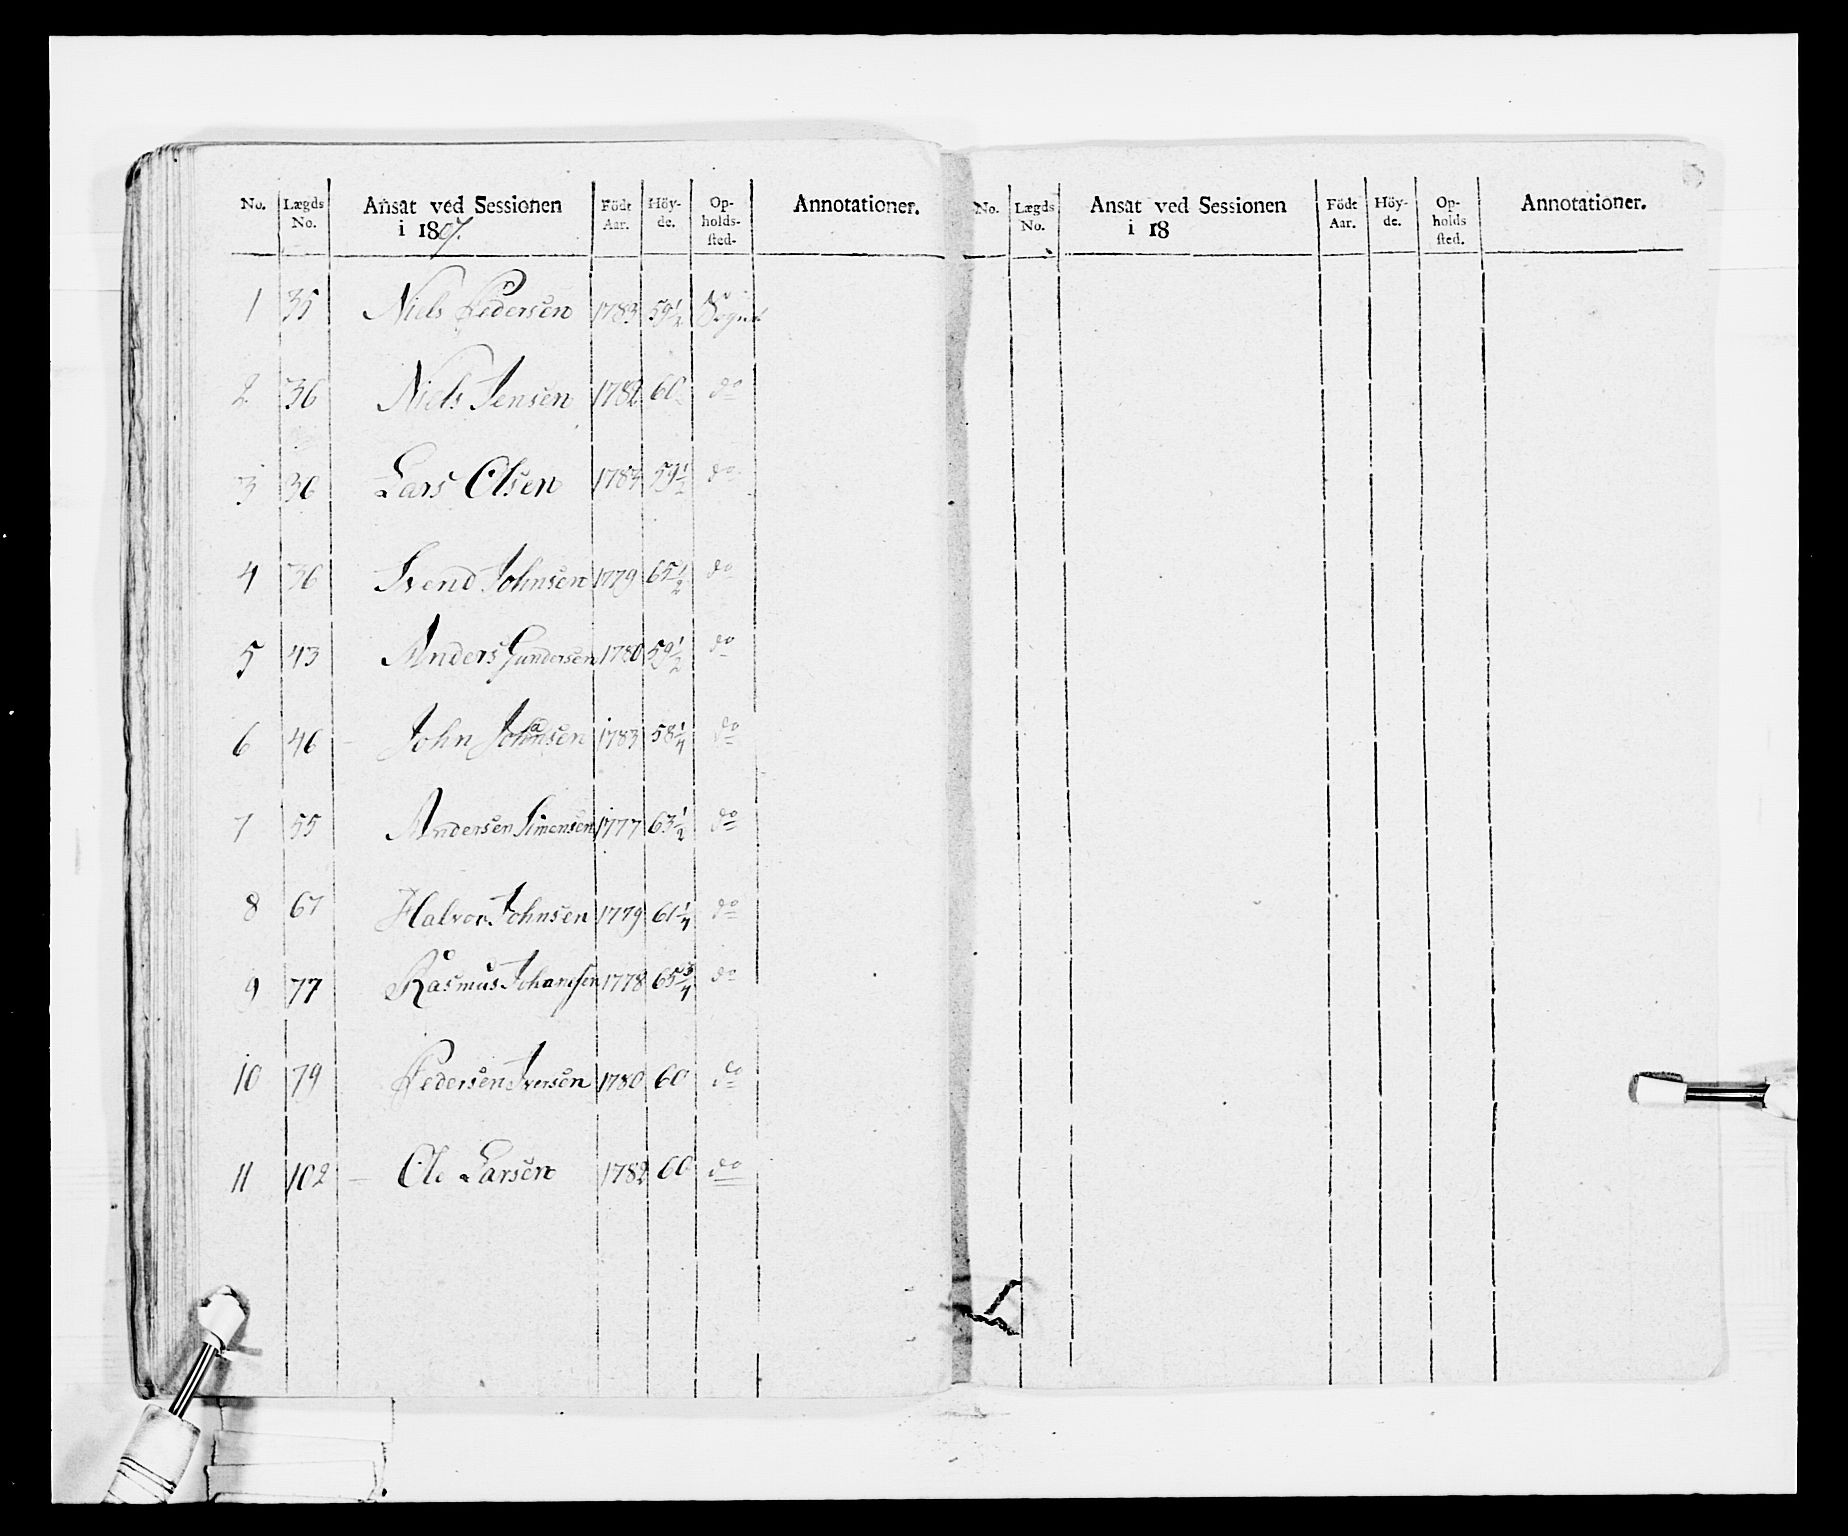 No. Lægds No. Ansat ved Sessionen i 1807. Födt Aar. Höy-de. Op-holds-sted. Annotationer.
1 35 Niels Pedersen 1783 59 1/2 Sogned
2 36 Niels Jensen 1782 60 do
3 36 Lars Olsen 1783 59 1/2 do
4 36 Svend Johnsen 1779 65 1/2 do
5 43 Anders Gundersen 1780 59 1/2 do
6 46 - John Johansen 1783 58 1/4 do
7 55 Andersen Simensen 1777 63 1/2 do
8 67 Halvor Johnsen 1779 61 1/4 do
9 77 Rasmus Johansen 1778 65 3/4 do
10 79 Pedersen Iversen 1780 60 do
11 102 - Ole Larsen 1782 60 do
No. Lægds No. Ansat ved Sessionen i 18 Födt Aar. Höy-de. Op-holds sted. Annotationer.